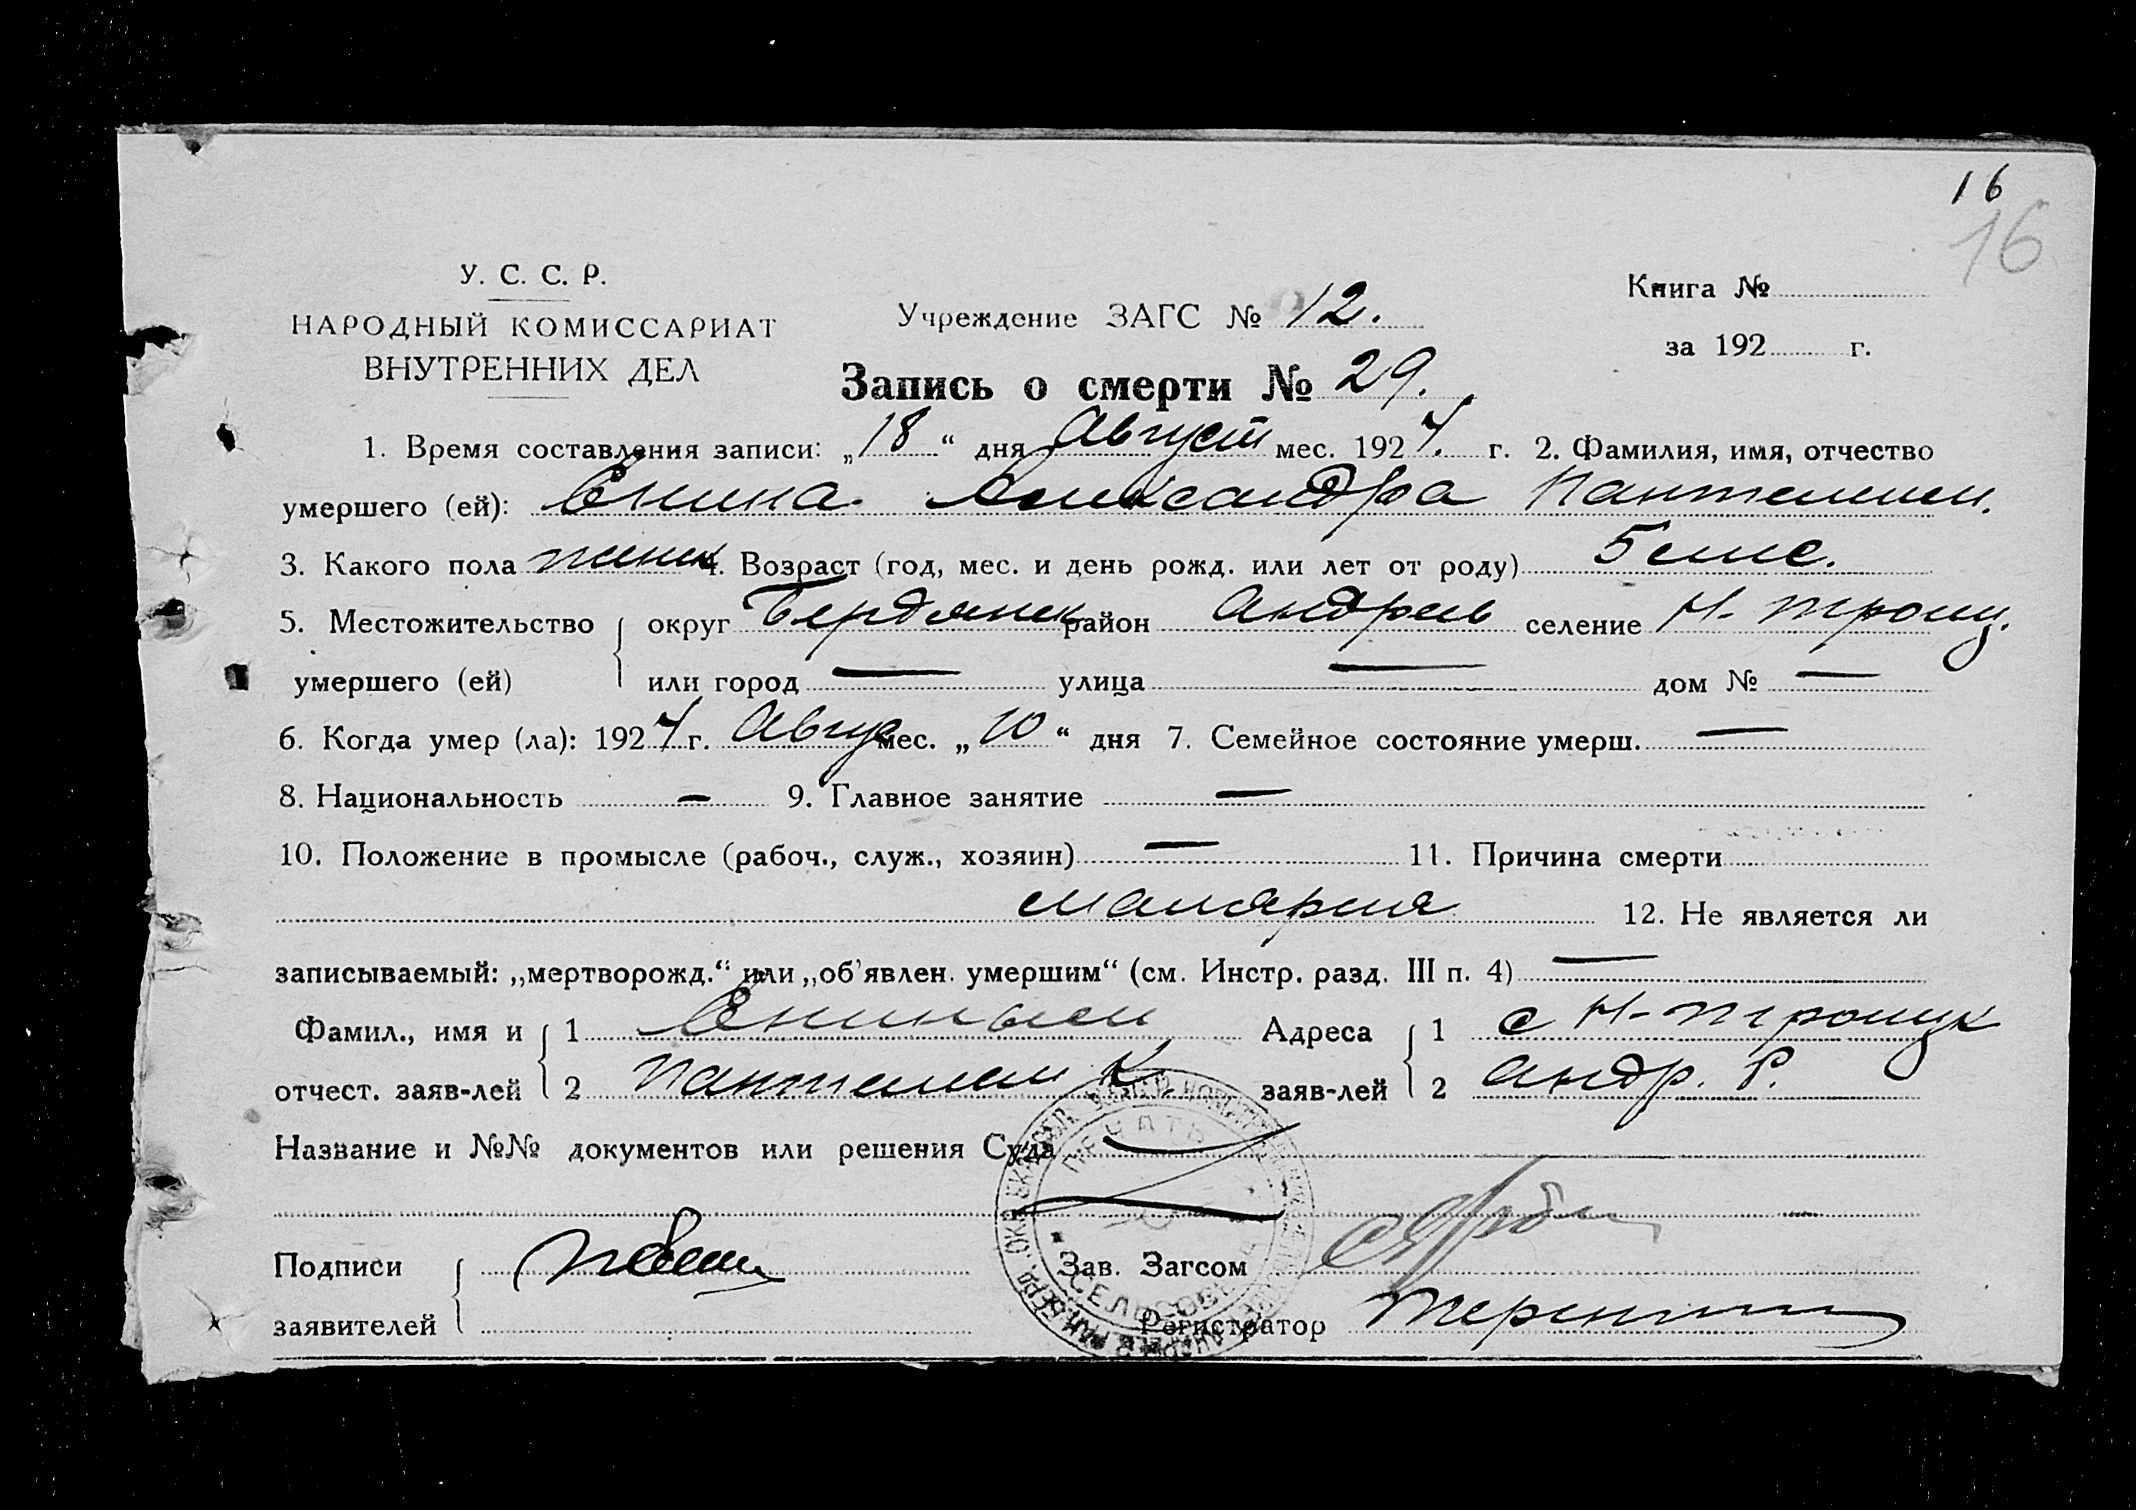 16
16
У. С. С. Р.
НАРОДНЫЙ КОМИССАРИАТ
ВНУТРЕННИХ ДЕЛ
Учреждение ЗАГС № 12.
Книга №
за 192 г.
Запись о смерти № 29.
1. Время составления записи: „18“ дня Август мес. 1924. г. 2. Фамилия, имя, отчество
умершего (ей): Енина Александра Пантелеим.
3. Какого пола женск 4. Возраст (год, мес. и день рожд. или лет от роду) 5 мис.
5. Местожительство округ Бердянск район Андреев селение Н-Троиц.
умершего (ей) или город — улица — дом № —
6. Когда умер (ла): 1924 г. Авгус мес. „10“ дня 7. Семейное состояние умерш. —
8. Национальность — 9. Главное занятие —
10. Положение в промысле (рабоч., служ., хозяин) — 11. Причина смерти
малярия 12. Не является ли
записываемый: „мертворожд.“ или „об'явлен. умершим“ (см. Инстр. разд. III п. 4) —
Фамил., имя и 1 Адреса 1 с Н-Троицк
отчест. заяв-лей 2 Пантелеим К. заяв-лей 2 Андр. Р.
Название и №№ документов или решения Суда
Подписи
Зав. Загсом
заявителей
Регистратор
ПЕЧАТЬ